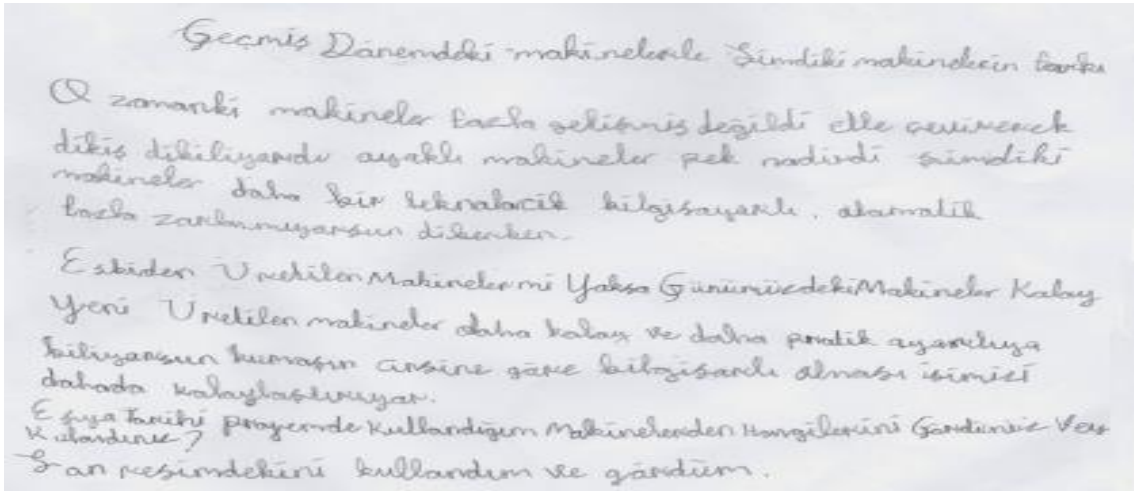 Geçmiş Dönemdeki makinelerle Şimdiki makinelerin farkı
O zamanki makineler fazla gelişmiş değildi elle çevirerek
dikiş dikiliyordu ayaklı makineler pek nadirdi şimdiki
makineler daha bir teknolocik bilgisayarlı. otamatik
fazla zorlanmıyorsun dikerken.
Eskiden Üretilen Makinelermi Yoksa Günümüzdeki Makineler Kolay
Yeni Üretilen makineler daha kolay ve daha pratik ayarlıya
biliyorsun kumaşın cinsine göre bilgisarlı olması işimizi
dahada kolaylaştırıyor.
Eşya Tarihi projemde Kullandığım Makinelerden Hangilerini Gördünüz Veya
Kulandınız?
Son resimdekini kullandım ve gördüm.